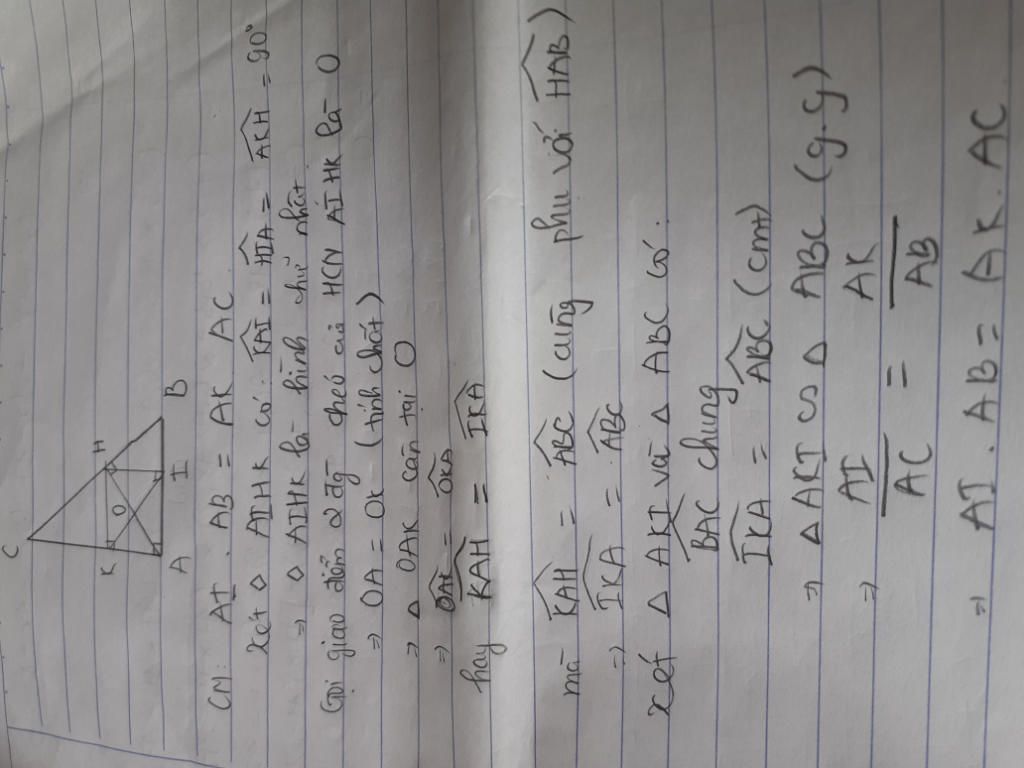 C
K
H
O
A
I
B
CM: AI . AB = AK . AC
xét ◇ AIHK có: KAI = HIA = AKH = 90°
⇒ ◇ AIHK là hình chữ nhật
Gọi giao điểm 2 đg chéo của HCN AIHK là O
⇒ OA = OK (tính chất)
⇒ △ OAK cân tại O
⇒ OAK = OKA
hay KAH = IKA
mà KAH = ABC (cùng phụ với HAB)
⇒ IKA = ABC
xét △ AKI và △ ABC có:
BAC chung
IKA = ABC (cmt)
⇒ △ AKI ∽ △ ABC (g.g)
⇒ AI/AC = AK/AB
⇒ AI . AB = AK . AC